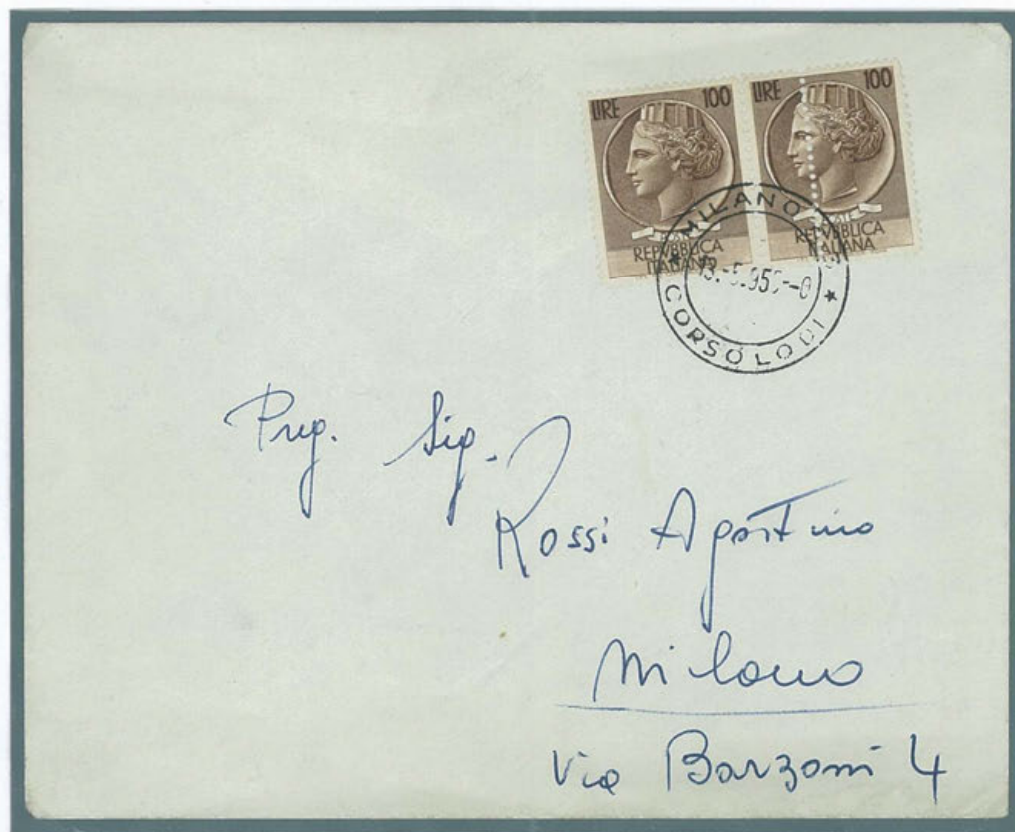 LIRE 100
REPVBBLICA
ITALIANA
LIRE 100
REPVBBLICA
ITALIANA
MILANO
CORSO LODI
Preg. Sig.
Rossi Agostino
Milano
Via Barzoni 4